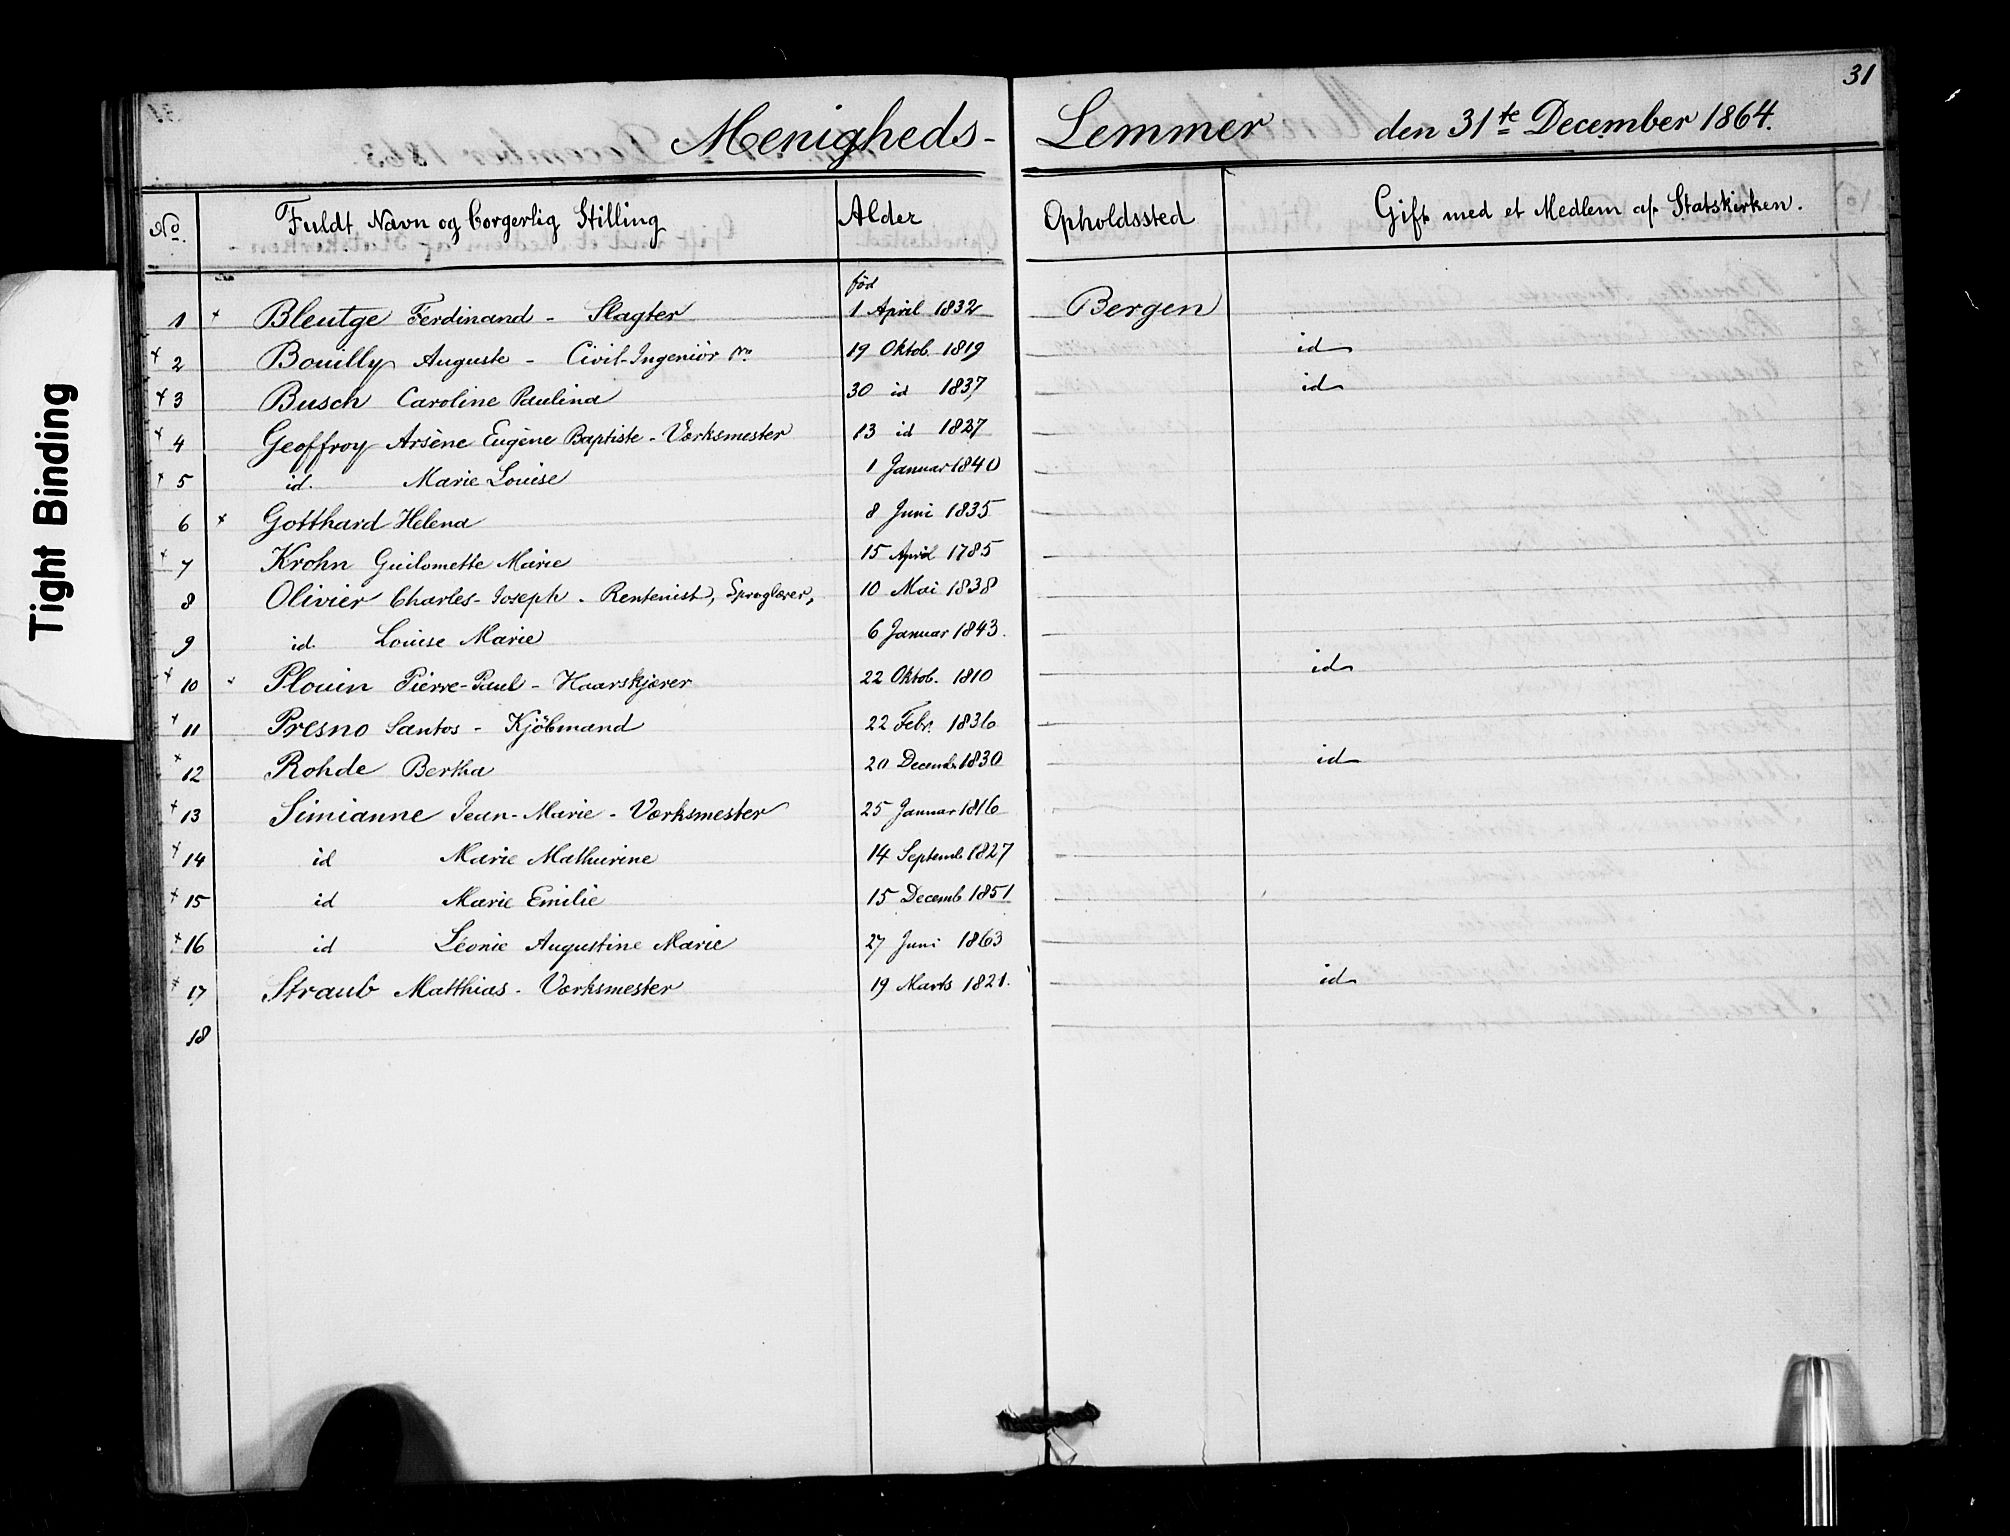 31
Menigheds- Lemmer den 31te December 1864.
No. Fuldt Navn og borgerlig Stilling Alder Opholdssted Gift med et Medlem af Statskirken.
fød
1 + Bleutge Ferdinand - Slagter 1 April 1832 Bergen
+ 2 Bouilly Auguste - Civil-Ingeniör 19 Oktob. 1819 — id
+ 3 Busch Caroline Paulina 30 id 1837 — id
+ 4 Geoffroy Arsène Eugène Baptiste - Værksmester 13 id 1827 —
+ 5 id. Marie Louise 1 Januar 1840 —
6 + Gotthard Helena 8 Juni 1835 —
+ 7 Krohn Guilomette Marie 15 April 1785 —
8 Olivier Charles-Joseph - Rentenist, Sproglærer, 10 Mai 1838 —
9 id. Louise Marie 6 Januar 1843. —
+ 10 Plouin Pierre-Paul - Haarskjærer 22 Oktob. 1810 — id
+ 11 Presno Santos - Kjöbmand 22 Febr. 1836 —
+ 12 Rohde Bertha 20 Decemb 1830 — id
+ 13 Simianne Jean-Marie - Værksmester 25 Januar 1816 —
+ 14 id Marie Mathurine 14 Septemb 1827 —
+ 15 id Marie Emilie 15 Decemb 1851 —
+ 16 id Léonie Augustine Marie 27 Juni 1863 —
+ 17 Straub Matthias - Værksmester 19 Marts 1821. — id
18
Tight Binding